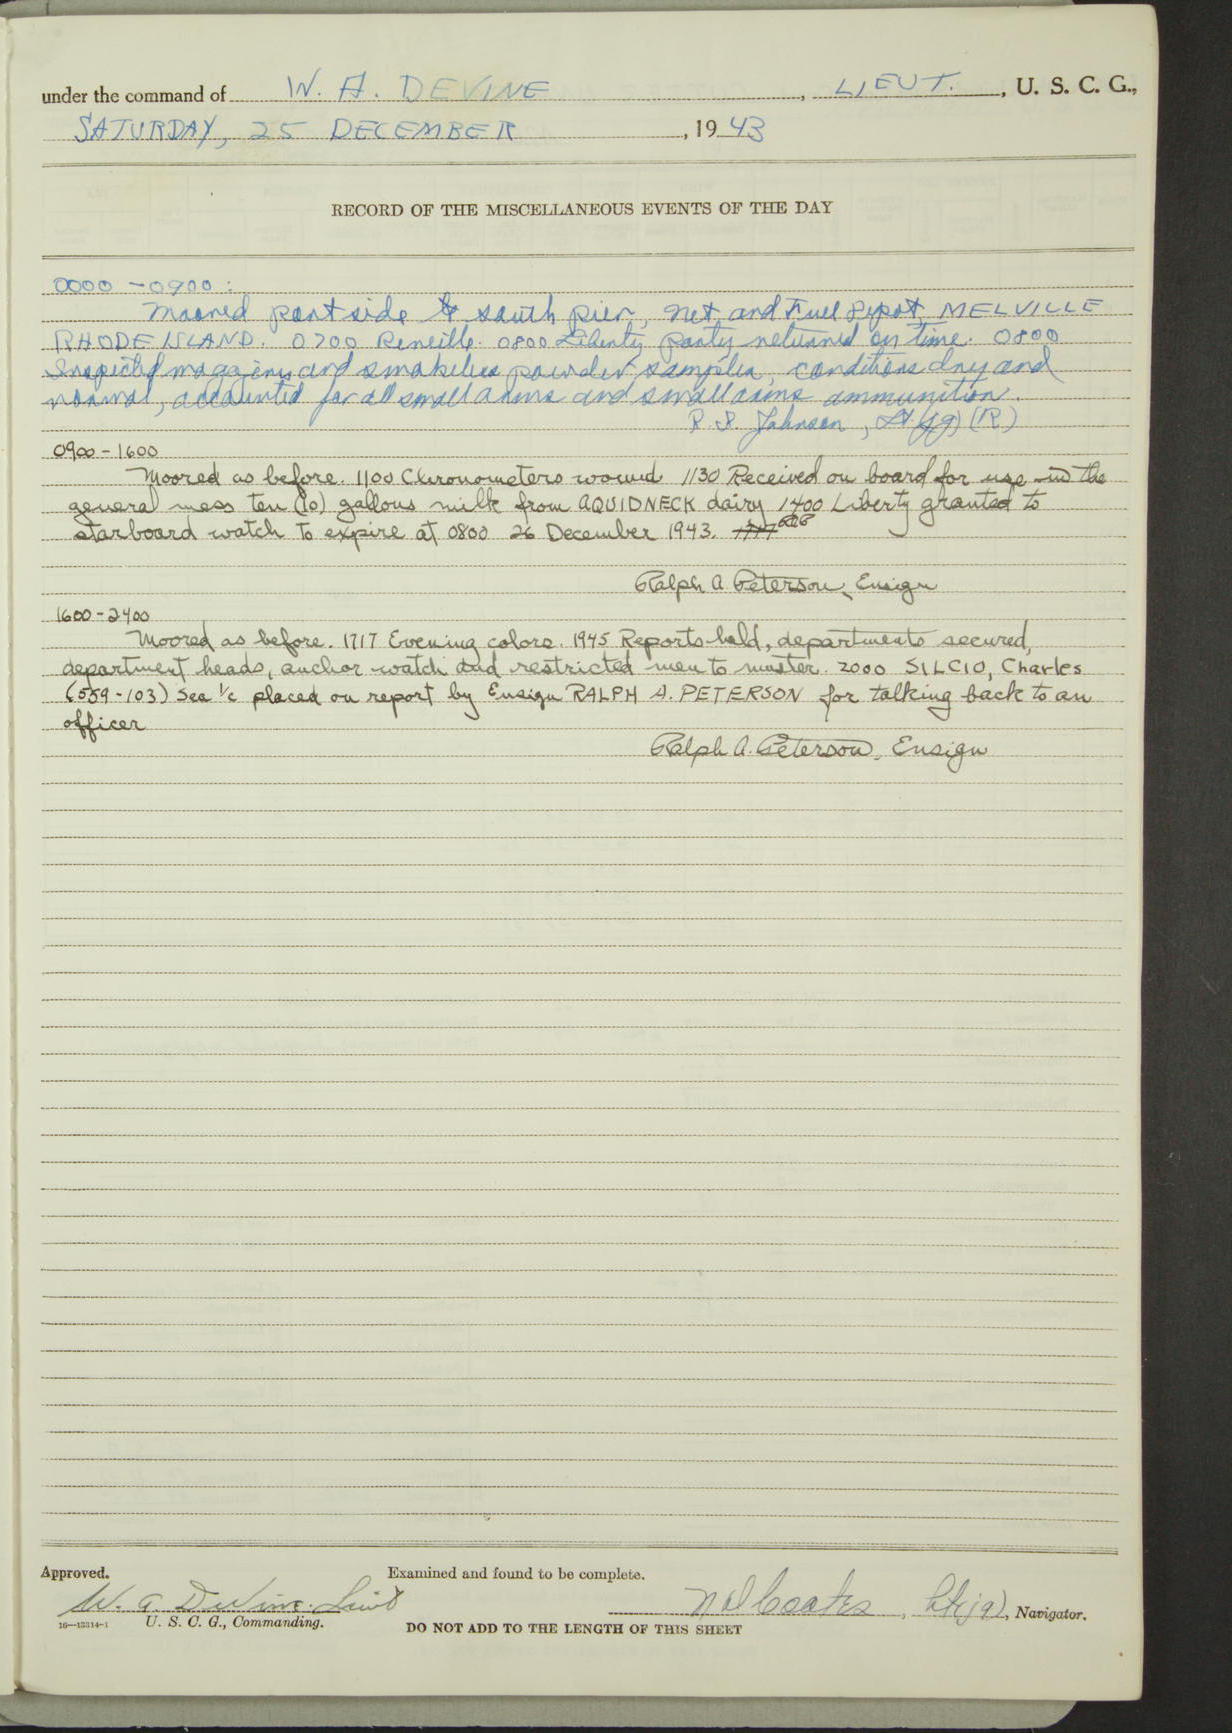 under the command of W. A. DEVINE, LIEUT., U. S. C. G.,
SATURDAY, 25 DECEMBER, 1943
RECORD OF THE MISCELLANEOUS EVENTS OF THE DAY
0000 - 0900:
Moored port side to south pier, Net and Fuel Depot, MELVILLE
RHODE ISLAND. 0700 Reveille. 0800 Liberty party returned on time. 0800
Inspected magazines and smokeless powder samples, conditions dry and
normal, accounted for all small arms and small arms ammunition.
R. S. Johnson, Lt. (jg) (R)
0900 - 1600
Moored as before. 1100 Chronometers wound 1130 Received on board for use in the
general mess ten (10) gallons milk from AQUIDNECK dairy 1400 Liberty granted to
starboard watch to expire at 0800 26 December 1943. 1717
Ralph A. Peterson, Ensign
1600 - 2400
Moored as before. 1717 Evening colors. 1945 Reports held, departments secured,
department heads, anchor watch and restricted men to muster. 2000 SILCIO, Charles
(559-103) Sea 1/c placed on report by Ensign RALPH A. PETERSON for talking back to an
officer
Ralph A. Peterson, Ensign
Approved. Examined and found to be complete.
W. A. Devine. Lieut Coates, Lt(jg), Navigator.
16—13314-1 U. S. C. G., Commanding. DO NOT ADD TO THE LENGTH OF THIS SHEET